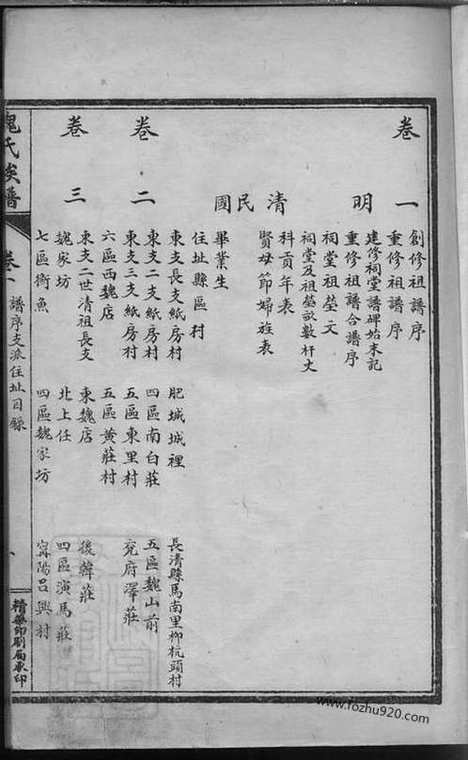 卷一
創修祖譜序
重修祖譜序
明
建修祠堂譜碑始末記
重修祖譜合譜序
祠堂祖塋文
祠堂及祖塋畝數杆丈
清
科貢年表
賢母節婦旌表
民國
畢業生
住址縣區村
卷二
東支長支紙房村 肥城城裡 長清縣馬南里柳杭頭村
東支二支紙房村 四區南白莊 五區魏山前
東支三支紙房村 五區東里村 兗府澤莊
六區西魏店 五區黄莊村
卷三
東支二世清祖長支 東魏店 後韓莊
魏家坊 北上任 四區演馬莊
七區衡魚 四區魏家坊 甯陽呂興村
魏氏族譜
卷一 譜序支派住址目錄
精藥印刷局承印
www.fozhu920.com